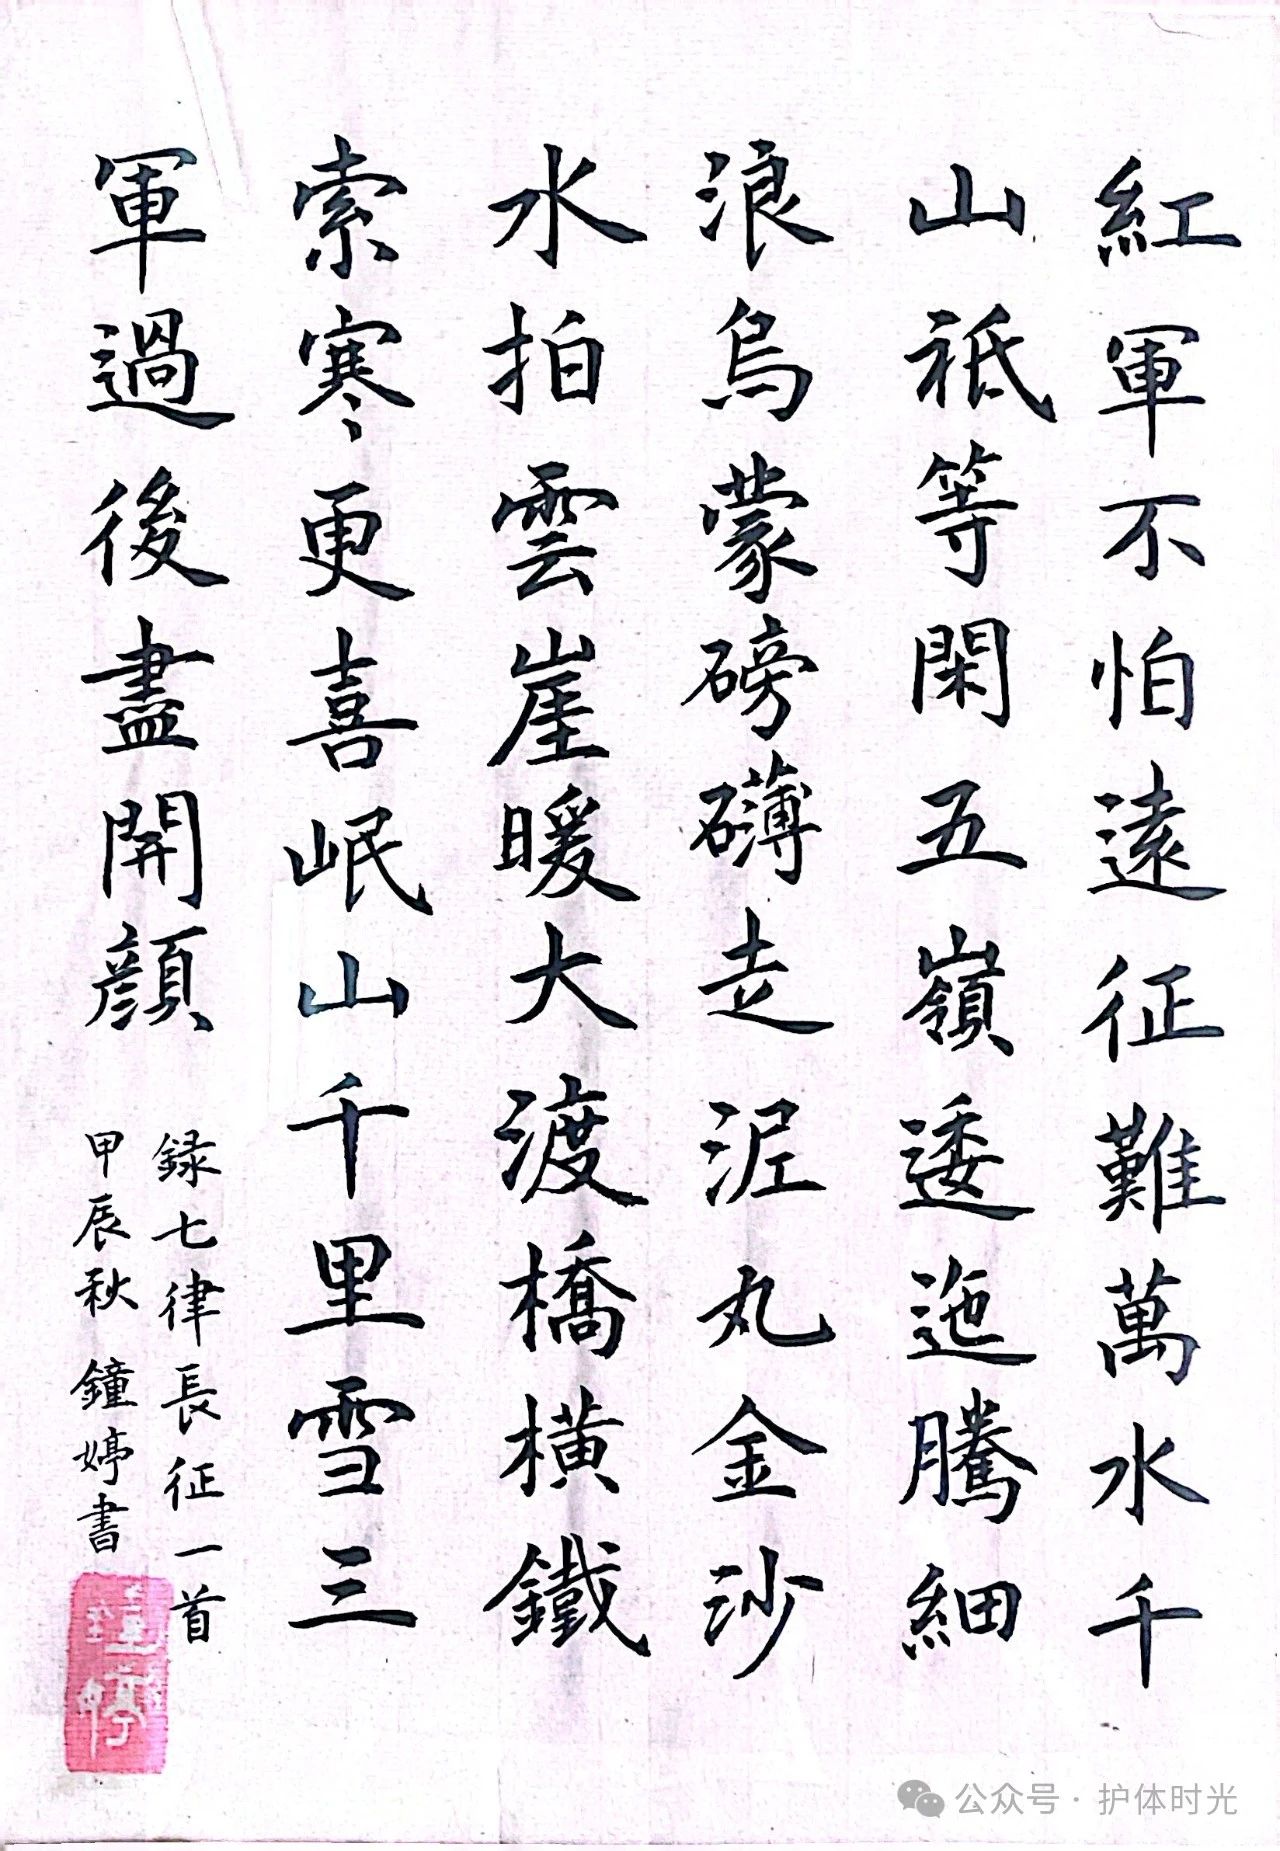 紅軍不怕遠征難萬水千
山祇等閑五嶺逶迤騰細
浪烏蒙磅礴走泥丸金沙
水拍雲崖暖大渡橋橫鐵
索寒更喜岷山千里雪三
軍過後盡開顏
録七律長征一首
甲辰秋 鐘婷書
鐘婷
公众号 · 护体时光